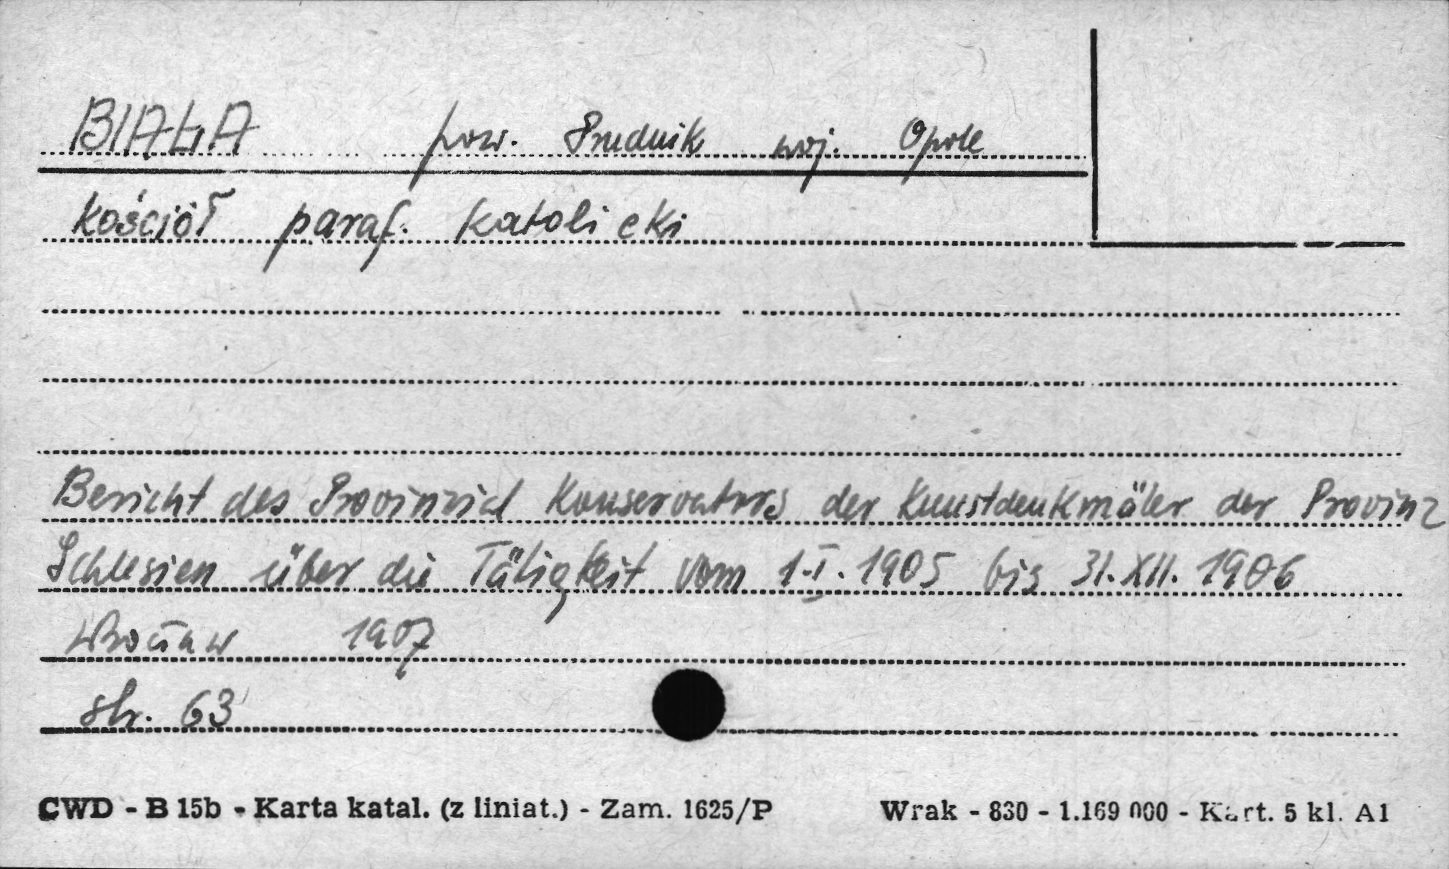 BIAŁA pow. Prudnik woj. Opole
kościół paraf. katolicki
Bericht des Provinzial Konservators der Kunstdenkmäler der Provinz
Schlesien über die Tätigkeit vom 1.I.1905 bis 31.XII.1906
Wrocław 1907
str. 63
CWD - B 15b - Karta katal. (z liniat.) - Zam. 1625/P Wrak - 830 - 1.169 000 - Kart. 5 kl. A1